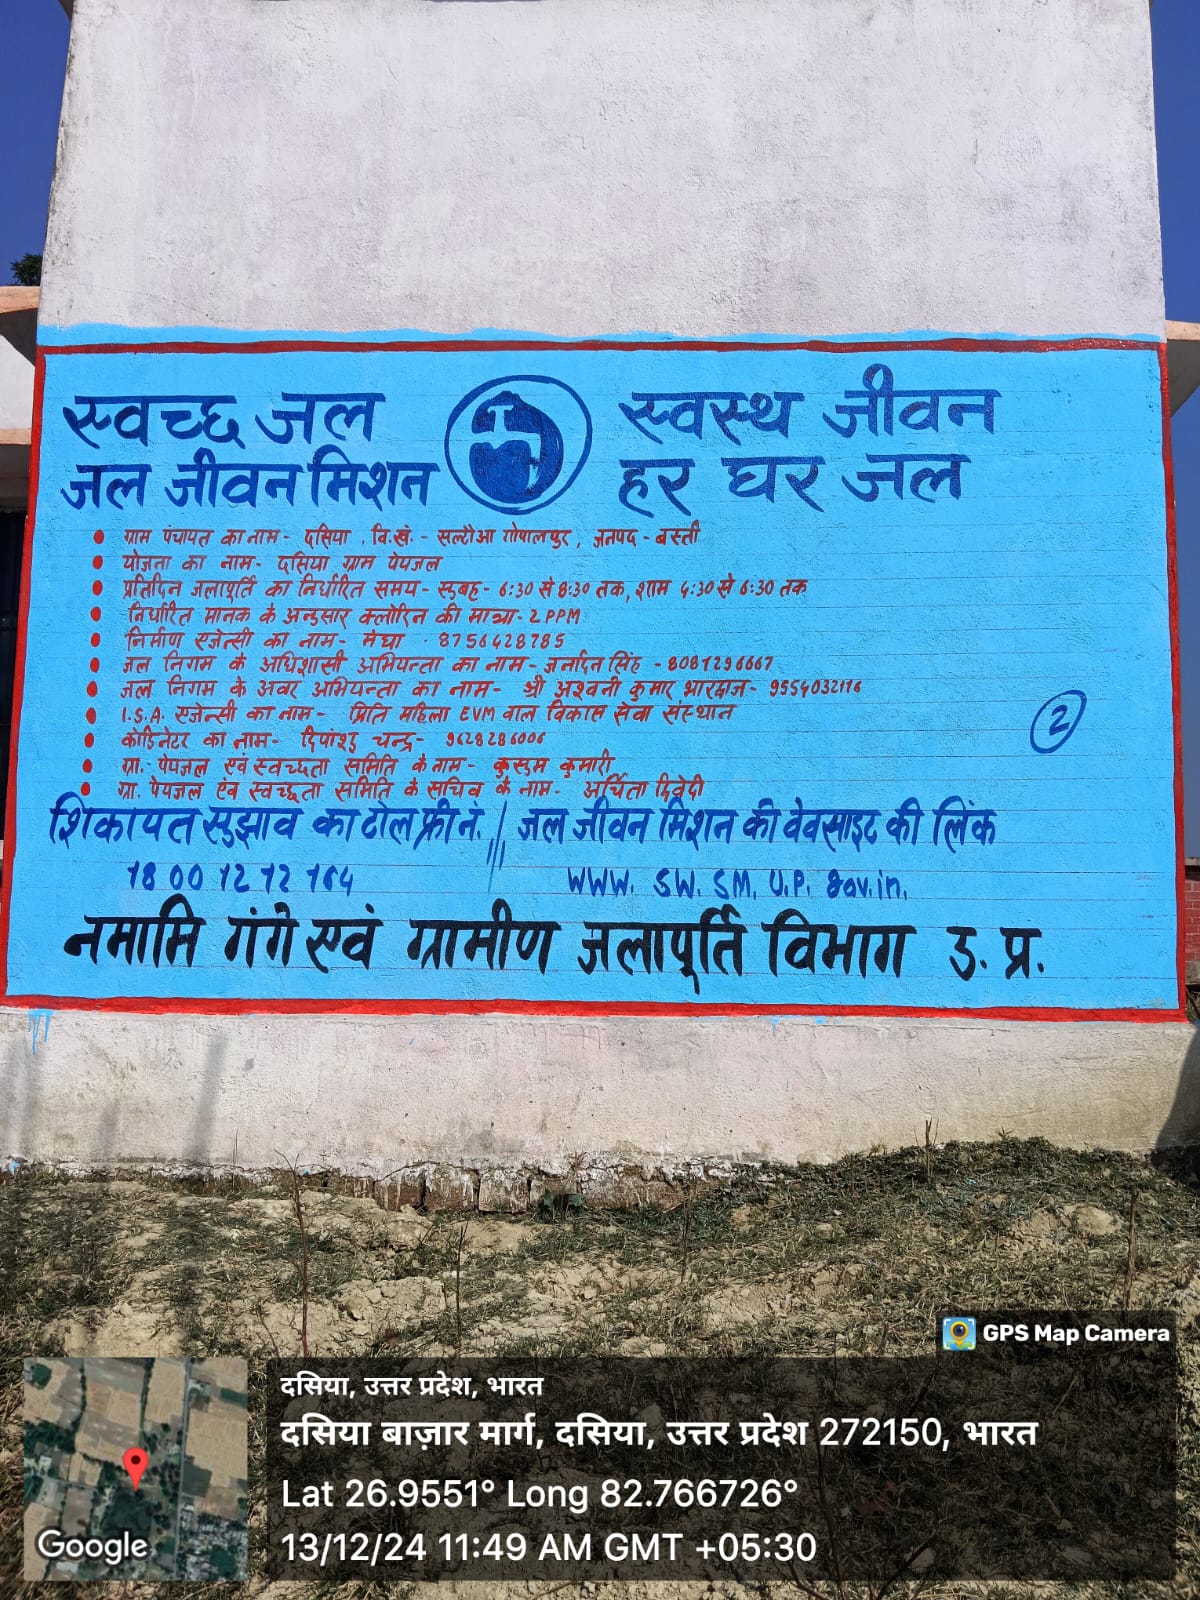 स्वच्छ जल स्वस्थ जीवन
जल जीवन मिशन हर घर जल
ग्राम पंचायत का नाम - दसिया , वि.खं. - सल्टौआ गोपालपुर, जनपद - बस्ती
योजना का नाम - दसिया ग्राम पेयजल
प्रतिदिन जलापूर्ति का निर्धारित समय - सुबह - 6:30 से 8:30 तक, शाम 4:30 से 6:30 तक
निर्धारित मानक के अनुसार क्लोरिन की मात्रा - 2 PPM
निर्माण एजेन्सी का नाम - मेघा - 8756428785
जल निगम के अधिशासी अभियन्ता का नाम - जर्नादन सिंह - 8081296667
जल निगम के अवर अभियन्ता का नाम - श्री अश्वनी कुमार भारद्वाज - 9554032116
I.S.A. एजेन्सी का नाम - प्रिति महिला EVM वाल विकास सेवा संस्थान
कोडिनेटर का नाम - दिपांशु चन्द्र - 9628286006
ग्रा. पेयजल एवं स्वच्छता समिति के नाम - कुसुम कुमारी
ग्रा. पेयजल एंव स्वच्छता समिति के सचिव के नाम - अर्चिता द्विवेदी
2
शिकायत सुझाव का टोल फ्री नं. // जल जीवन मिशन की वेवसाइट की लिंक
18 00 12 12 164 WWW. SW. SM. U.P. Gov.in.
नमामि गंगे एवं ग्रामीण जलापूर्ति विभाग उ. प्र.
GPS Map Camera
दसिया, उत्तर प्रदेश, भारत
दसिया बाज़ार मार्ग, दसिया, उत्तर प्रदेश 272150, भारत
Lat 26.9551° Long 82.766726°
13/12/24 11:49 AM GMT +05:30
Google